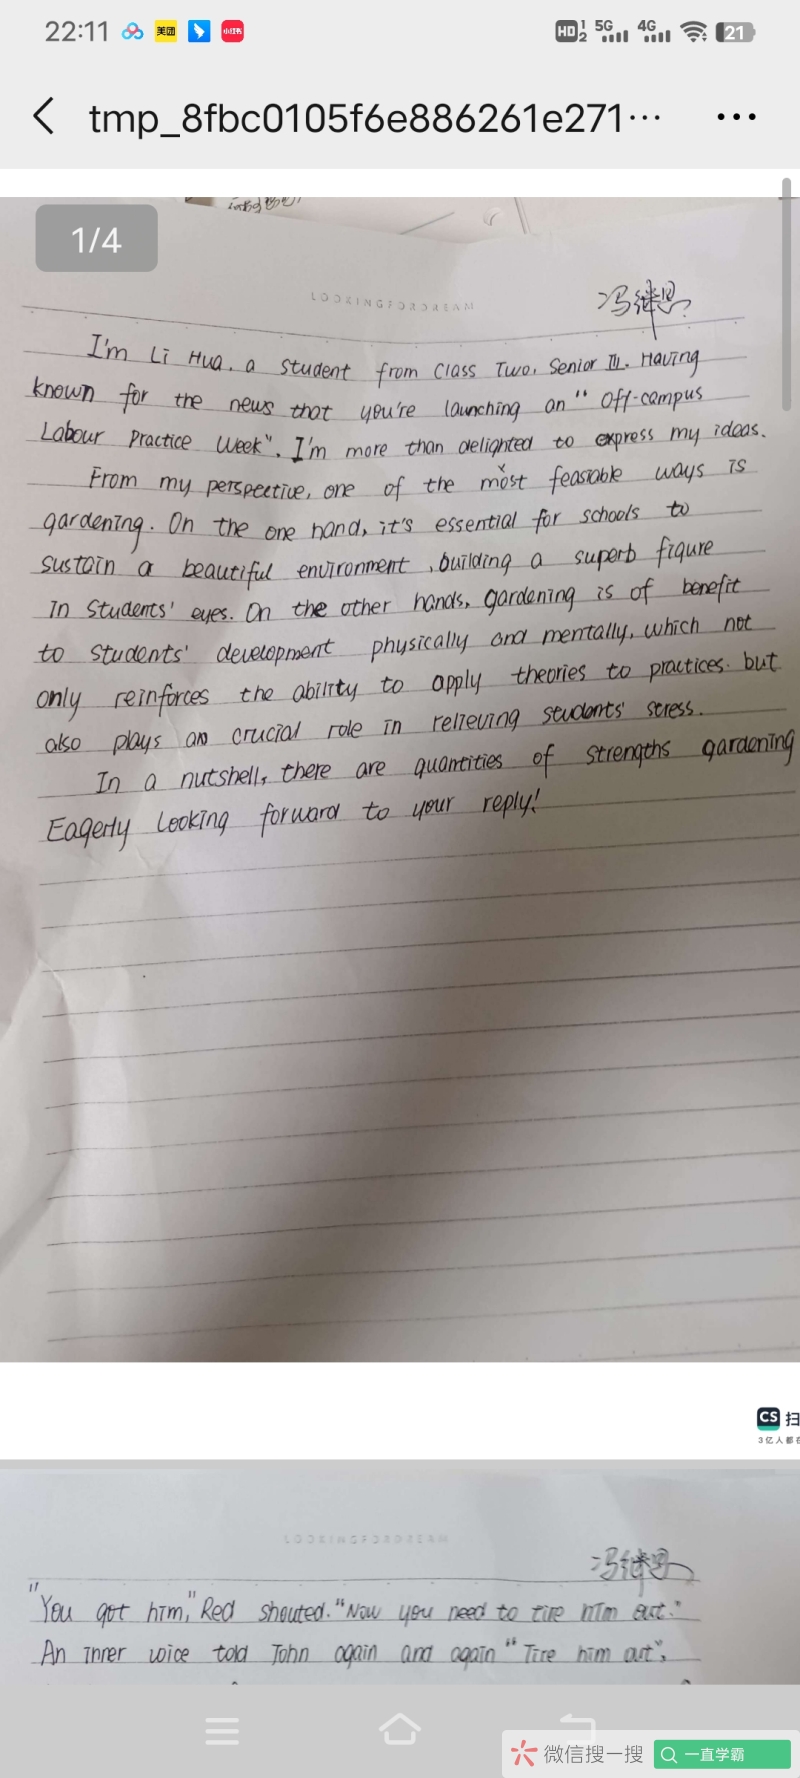 22:11 美团 小红书 HD 1 2 5G 4G 21
tmp_8fbc0105f6e886261e271···
1/4
LOOKINGFORDREAM
冯继思
I'm Li Hua, a student from Class Two, Senior III. Having
known for the news that you're launching an " Off-campus
Labour Practice Week". I'm more than delighted to express my ideas.
From my perspective, one of the most feasiable ways is
gardening. On the one hand, it's essential for schools to
sustain a beautiful environment , building a superb figure
in students' eyes. On the other hands, gardening is of benefit
to students' development physically and mentally, which not
only reinforces the ability to apply theories to practices. but
also plays an crucial role in relieving students' stress.
In a nutshell, there are quantities of strengths gardening
Eagerly looking forward to your reply!
CS 扫
3亿人都在
LOOKINGFORDREAM
冯继思
"You got him," Red shouted. "Now you need to tire him out."
An inner voice told John again and again "Tire him out",
微信搜一搜 一直学霸